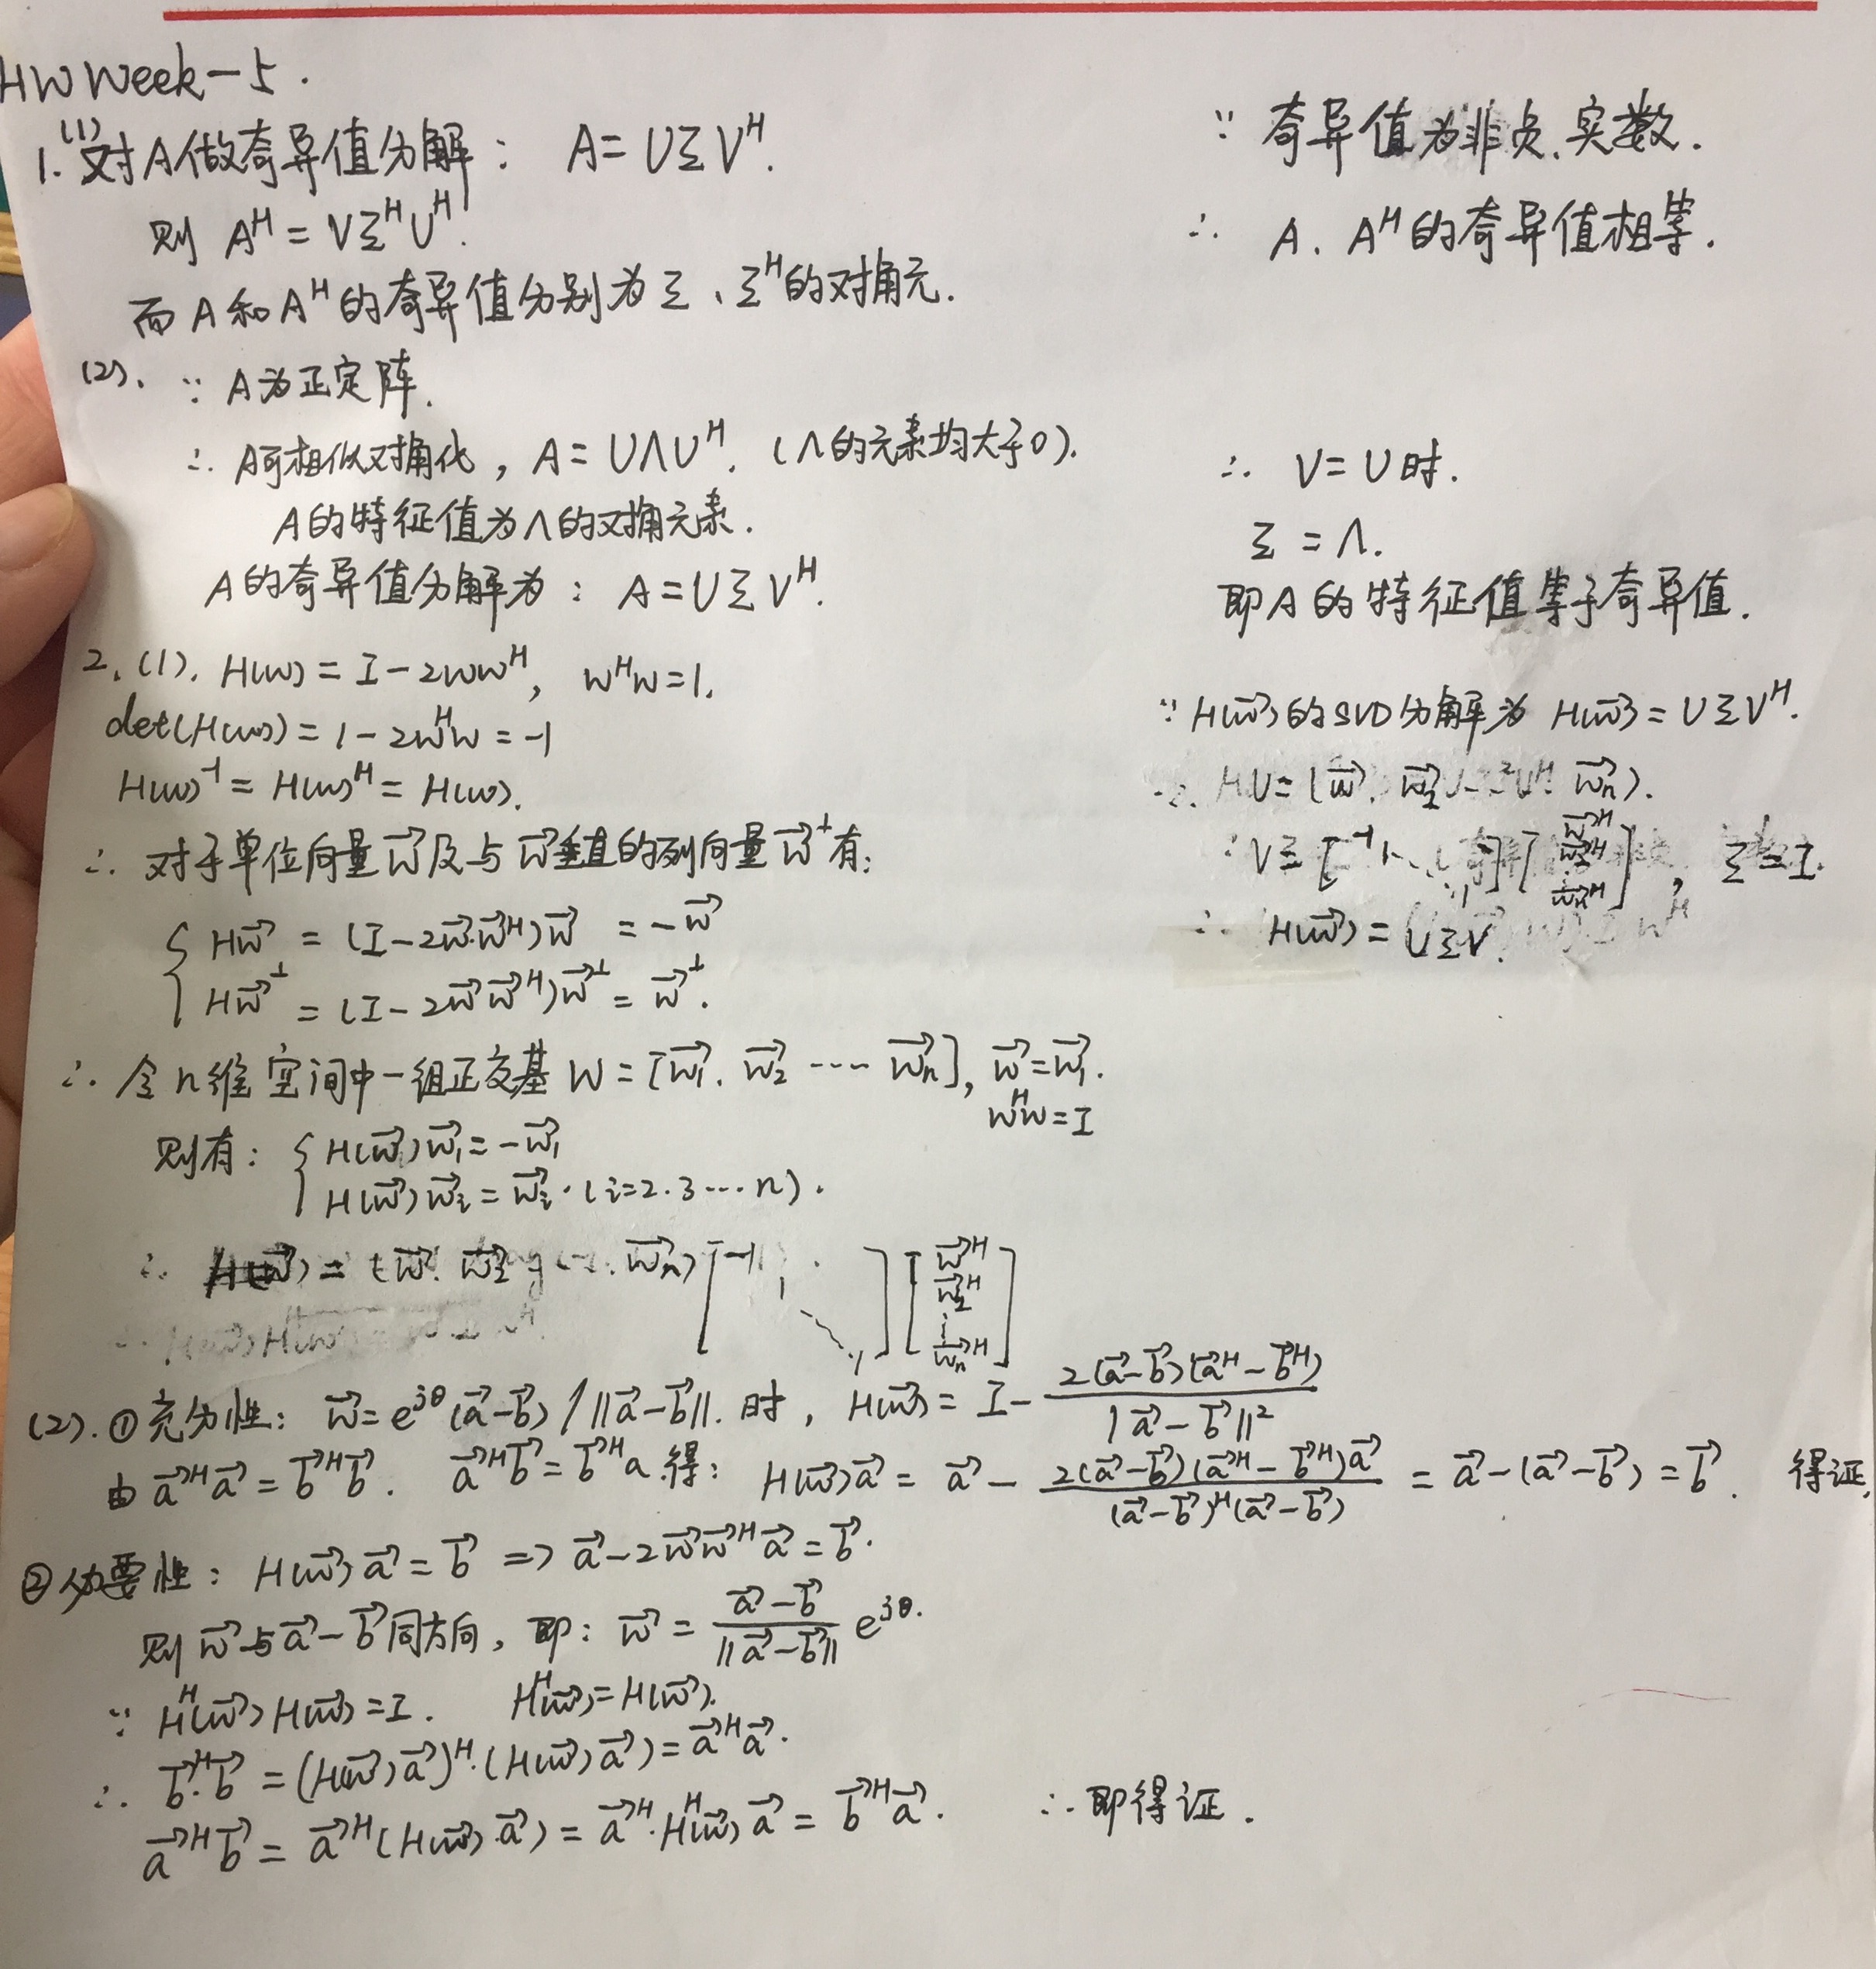 HW Week-5.
1.(1) 对A做奇异值分解： A=UΣV^H.
则 A^H = VΣ^H U^H.
而A和A^H的奇异值分别为Σ、Σ^H的对角元.
∵ 奇异值为非负实数.
∴ A. A^H的奇异值相等.
(2). ∵ A为正定阵.
∴ A可相似对角化，A=UΛU^H. (Λ的元素均大于0).
A的特征值为Λ的对角元素.
A的奇异值分解为： A=UΣV^H.
∴ V=U时.
Σ=Λ.
即A的特征值等于奇异值.
2.(1). H(w) = I-2ww^H, w^H w=1.
det(H(w)) = 1-2w^H w = -1
H(w)^-1 = H(w)^H = H(w).
∴ 对于单位向量w⃗及与w⃗垂直的列向量w⃗^⊥有：
{ Hw⃗ = (I-2w⃗·w⃗^H)w⃗ = -w⃗
Hw⃗^⊥ = (I-2w⃗w⃗^H)w⃗^⊥ = w⃗^⊥.
∴ 令n维空间中一组正交基 W=[w⃗₁. w⃗₂ ---- w⃗n], w⃗=w⃗₁.
W^H W=I
则有： { H(w⃗)w⃗₁=-w⃗₁
H(w⃗)w⃗i = w⃗i. (i=2.3…n).
∴ H(w⃗) = (w⃗. w⃗₂ w⃗n) [-1 1 ⋱ 1] [w⃗^H w⃗₂^H ⋮ w⃗n^H]
∵ H(w⃗)的SVD分解为 H(w⃗)=UΣV^H.
∴ U=(w⃗. w⃗₂ w⃗n).
V= [-1 1 ⋱ 1] [w⃗^H w⃗₂^H ⋮ w⃗n^H], Σ=I.
∴ H(w⃗) = UΣV.
(2). ①充分性： w⃗=e^jθ(a⃗-b⃗)/||a⃗-b⃗||. 时，H(w⃗) = I- 2(a⃗-b⃗)(a⃗^H-b⃗^H) / |a⃗-b⃗||²
由 a⃗^H a⃗ = b⃗^H b⃗. a⃗^H b⃗ = b⃗^H a 得： H(w⃗)a⃗ = a⃗ - 2(a⃗-b⃗)(a⃗^H-b⃗^H)a⃗ / (a⃗-b⃗)^H(a⃗-b⃗) = a⃗-(a⃗-b⃗) = b⃗. 得证.
②必要性： H(w⃗)a⃗ = b⃗ => a⃗-2w⃗w⃗^H a⃗ = b⃗.
则 w⃗与a⃗-b⃗同方向，即： w⃗ = a⃗-b⃗ / ||a⃗-b⃗|| e^jθ.
∵ H^H(w⃗)H(w⃗)=I. H^H(w⃗)=H(w⃗).
∴ b⃗^H·b⃗ = (H(w⃗)a⃗)^H·(H(w⃗)a⃗) = a⃗^H a⃗.
a⃗^H b⃗ = a⃗^H(H(w⃗)·a⃗) = a⃗^H·H^H(w⃗)a⃗ = b⃗^H a⃗. ∴ 即得证.